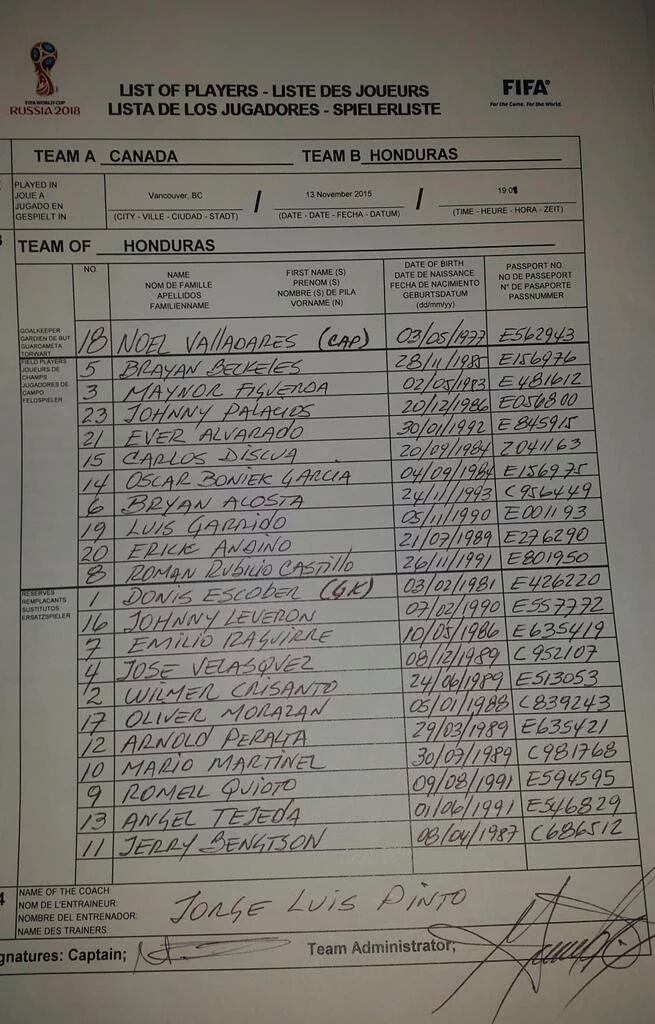 FIFA WORLD CUP
RUSSIA 2018
LIST OF PLAYERS - LISTE DES JOUEURS
LISTA DE LOS JUGADORES - SPIELERLISTE
FIFA®
For the Game. For the World.
TEAM A CANADA TEAM B HONDURAS
PLAYED IN
JOUE A
JUGADO EN
GESPIELT IN
Vancouver, BC / 13 November 2015 /
(CITY - VILLE - CIUDAD - STADT) (DATE - DATE - FECHA - DATUM) (TIME - HEURE - HORA - ZEIT)
TEAM OF HONDURAS
NO.
NAME
NOM DE FAMILLE
APELLIDOS
FAMILIENNAME
FIRST NAME (S)
PRENOM (S)
NOMBRE (S) DE PILA
VORNAME (N)
DATE OF BIRTH
DATE DE NAISSANCE
FECHA DE NACIMIENTO
GEBURTSDATUM
(dd/mm/yy)
PASSPORT NO.
NO DE PASSEPORT
N° DE PASAPORTE
PASSNUMMER
GOALKEEPER
GARDIEN DE BUT
GUARDAMETA
TORWART
18 NOEL VALLADARES (CAP) 03/05/1977 E562943
FIELD PLAYERS
JOUEURS DE
CHAMPS
JUGADORES DE
CAMPO
FELDSPIELER
5 BRAYAN BECKELES 28/11/1985 E156976
3 MAYNOR FIGUEROA 02/05/1983 E481612
23 JOHNNY PALACIOS 20/12/1986 E056800
21 EVER ALVARADO 30/01/1992 E845915
15 CARLOS DISCUA 20/09/1984 Z041163
14 OSCAR BONIEK GARCIA 04/09/1984 E156975
6 BRYAN ACOSTA 24/11/1993 C956449
19 LUIS GARRIDO 05/11/1990 E001193
20 ERICK ANDINO 21/07/1989 E276290
8 ROMAN RUBILIO CASTILLO 26/11/1991 E801950
RESERVES
REMPLACANTS
SUSTITUTOS
ERSATZSPIELER
1 DONIS ESCOBER (GK) 03/02/1981 E426220
16 JOHNNY LEVERON 07/02/1990 E557772
7 EMILIO IZAGUIRRE 10/05/1986 E635419
4 JOSE VELASQUEZ 08/12/1989 C952107
2 WILMER CRISANTO 24/06/1989 E513053
17 OLIVER MORAZAN 05/01/1988 C839243
12 ARNOLD PERALTA 29/03/1989 E635421
10 MARIO MARTINEZ 30/07/1989 C981768
9 ROMELL QUIOTO 09/08/1991 E594595
13 ANGEL TEJEDA 01/06/1991 E546829
11 JERRY BENGTSON 08/04/1987 C686512
NAME OF THE COACH:
NOM DE L'ENTRAINEUR:
NOMBRE DEL ENTRENADOR:
NAME DES TRAINERS:
JORGE LUIS PINTO
gnatures: Captain; Team Administrator;